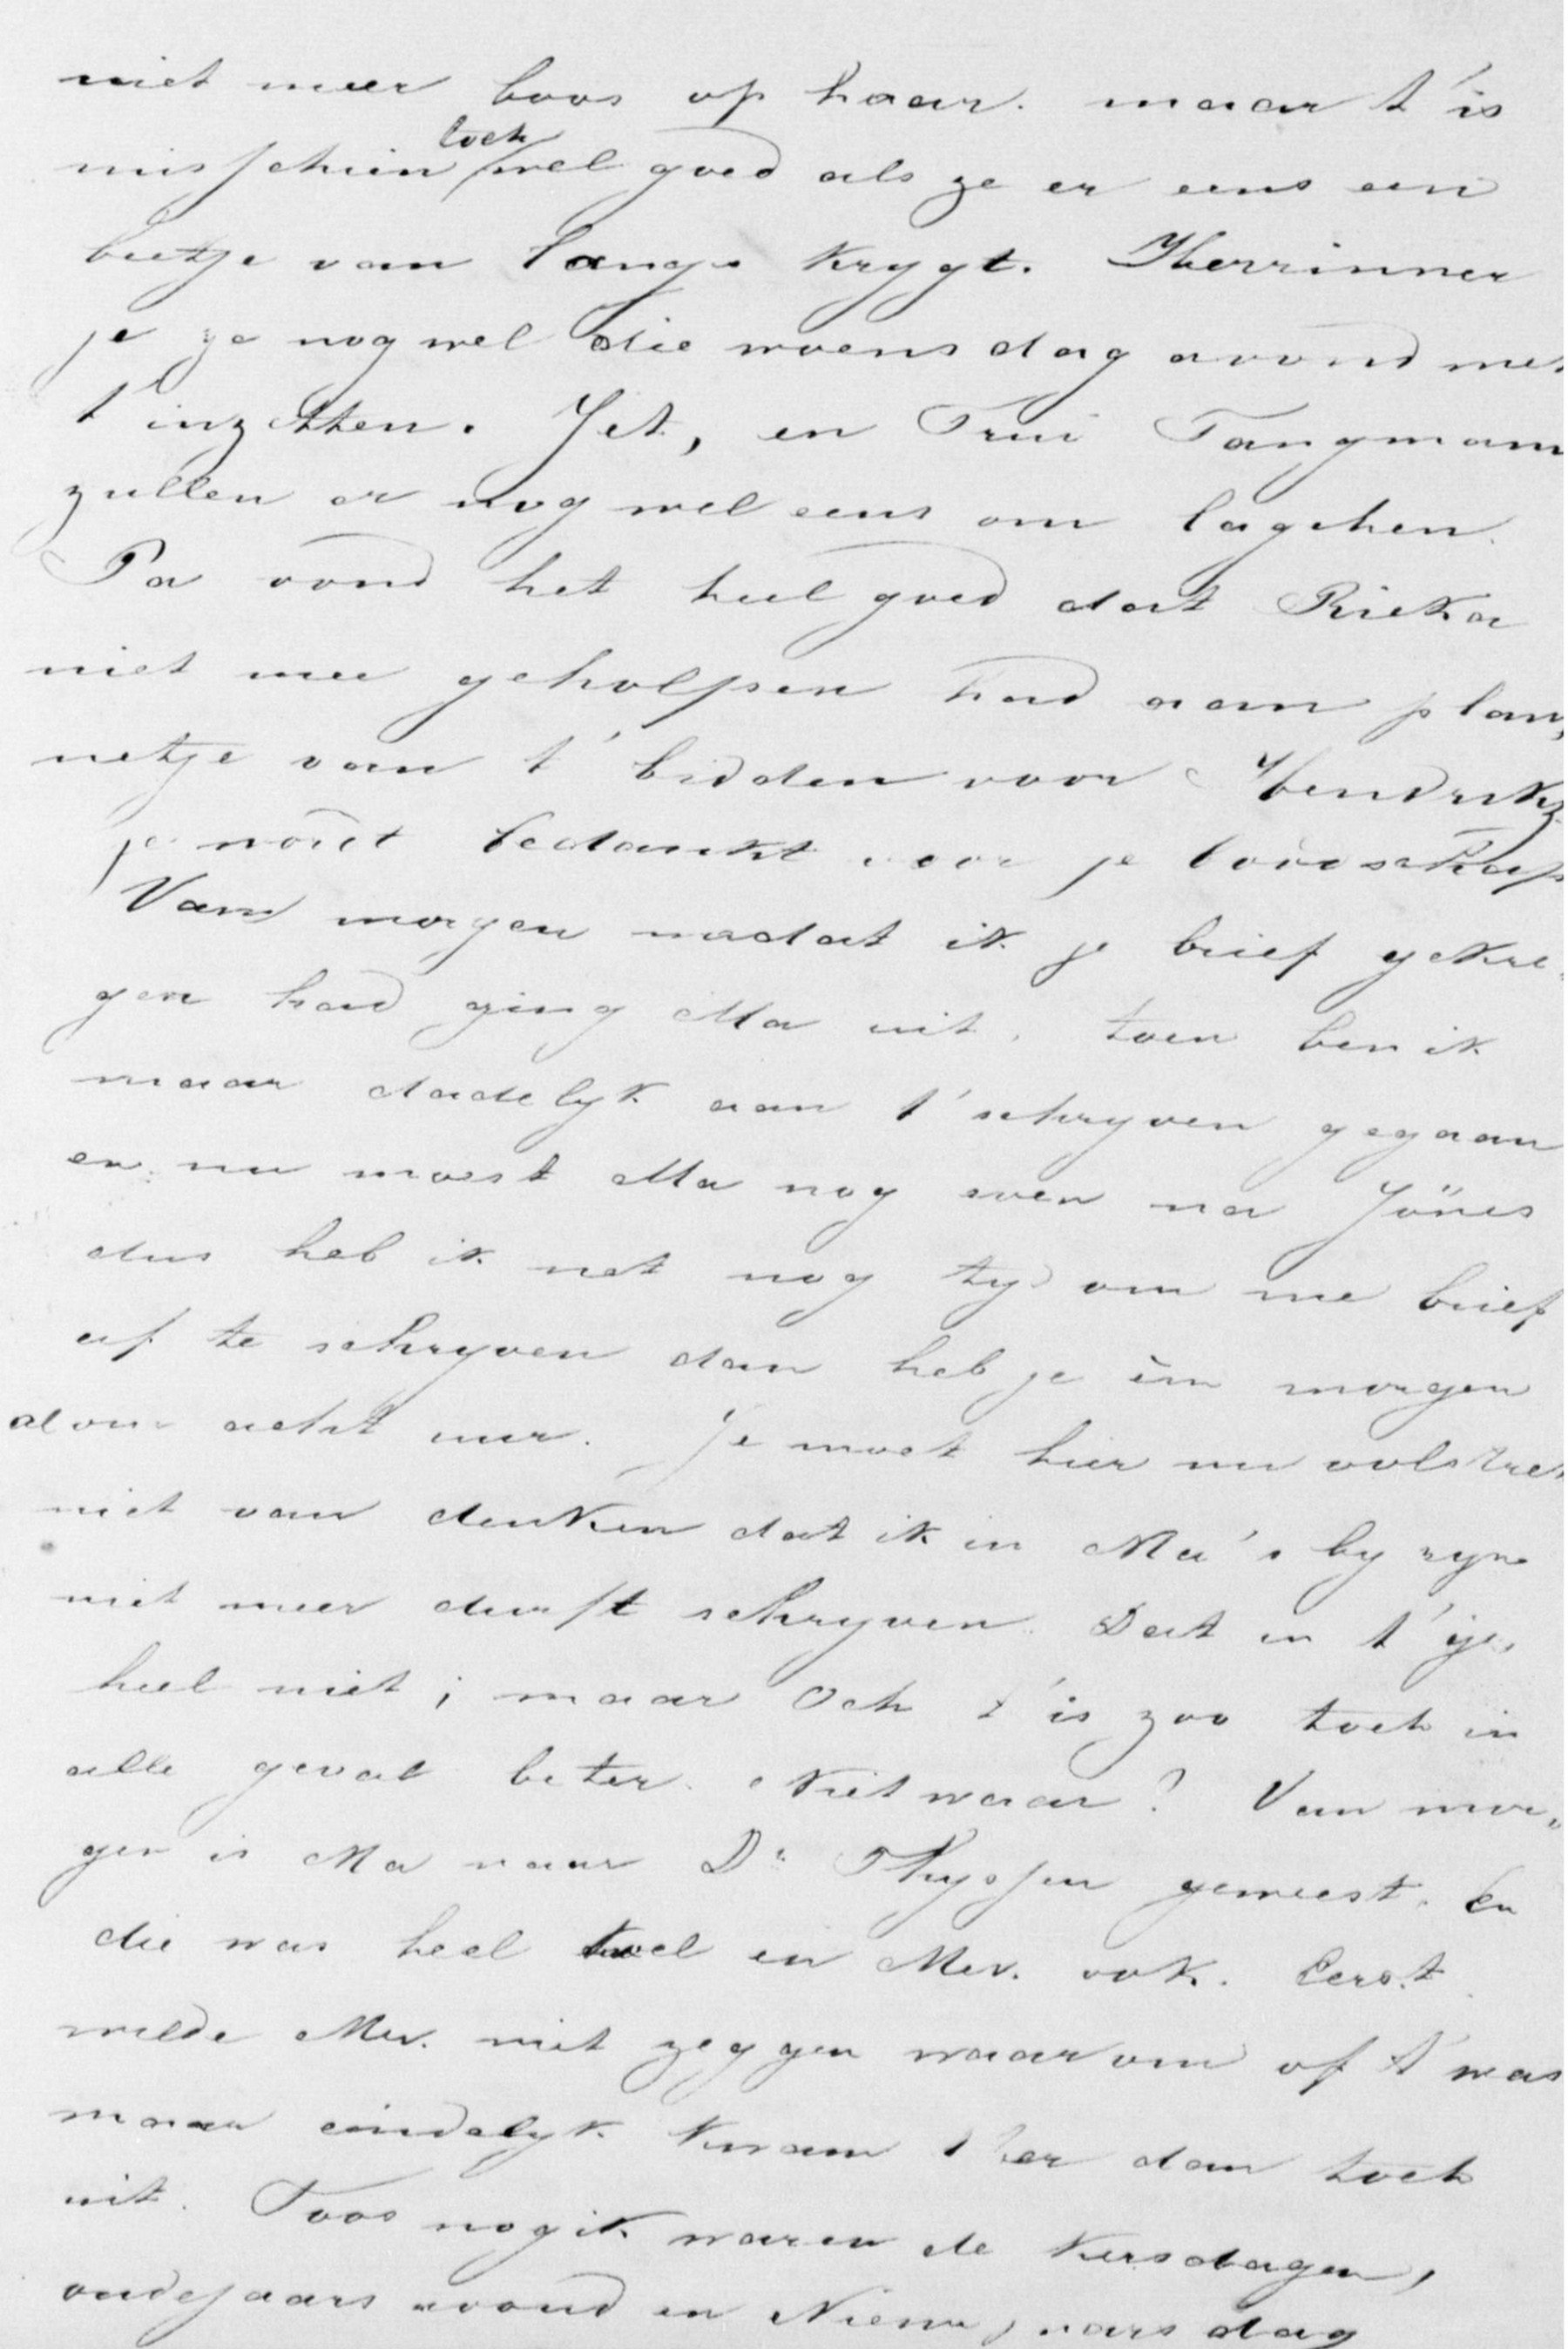 niet meer boos op haar. maar t'is
misschien toch wel goed als ze er eens een
beetje van langs krygt. Herrinner
je je nog wel die woensdag avond met
t'inzetten. Jet, en Trui Tangmann
zullen er nog wel eens om lagchen.
Pa vond het heel goed dat Rieka
niet mee geholpen had aan plan,
netje van t' bidden voor Hendrikz
je wordt bedankt voor je boodschap
Van morgen nadat ik je brief gekre-
gen had ging Ma uit, toen ben ik
maar dadelyk aan t'schryven gegaan
en nu moest Ma nog even na Jönes
dus heb ik net nog tyd om me brief
af te schryven dan heb je èm morgen
al om acht uur. Je moet hier nu volstrek
niet van denken dat ik in Ma's by zyn
niet meer durft schryven. Dat in t'ge,
heel niet; maar och t'is zoo toch in
alle geval beter. Niet waar? Van mor,
gen is Ma naar Dr Thyssen geweest. En
die was heel en Mev. ook. Eerst
wilde Mev. niet zeggen waarom of t'was
maar eindelyk kwam t'er dan toch
uit. Toos nog ik waren de Kersdagen,
oudejaars avond en Nieuwjaarsdag